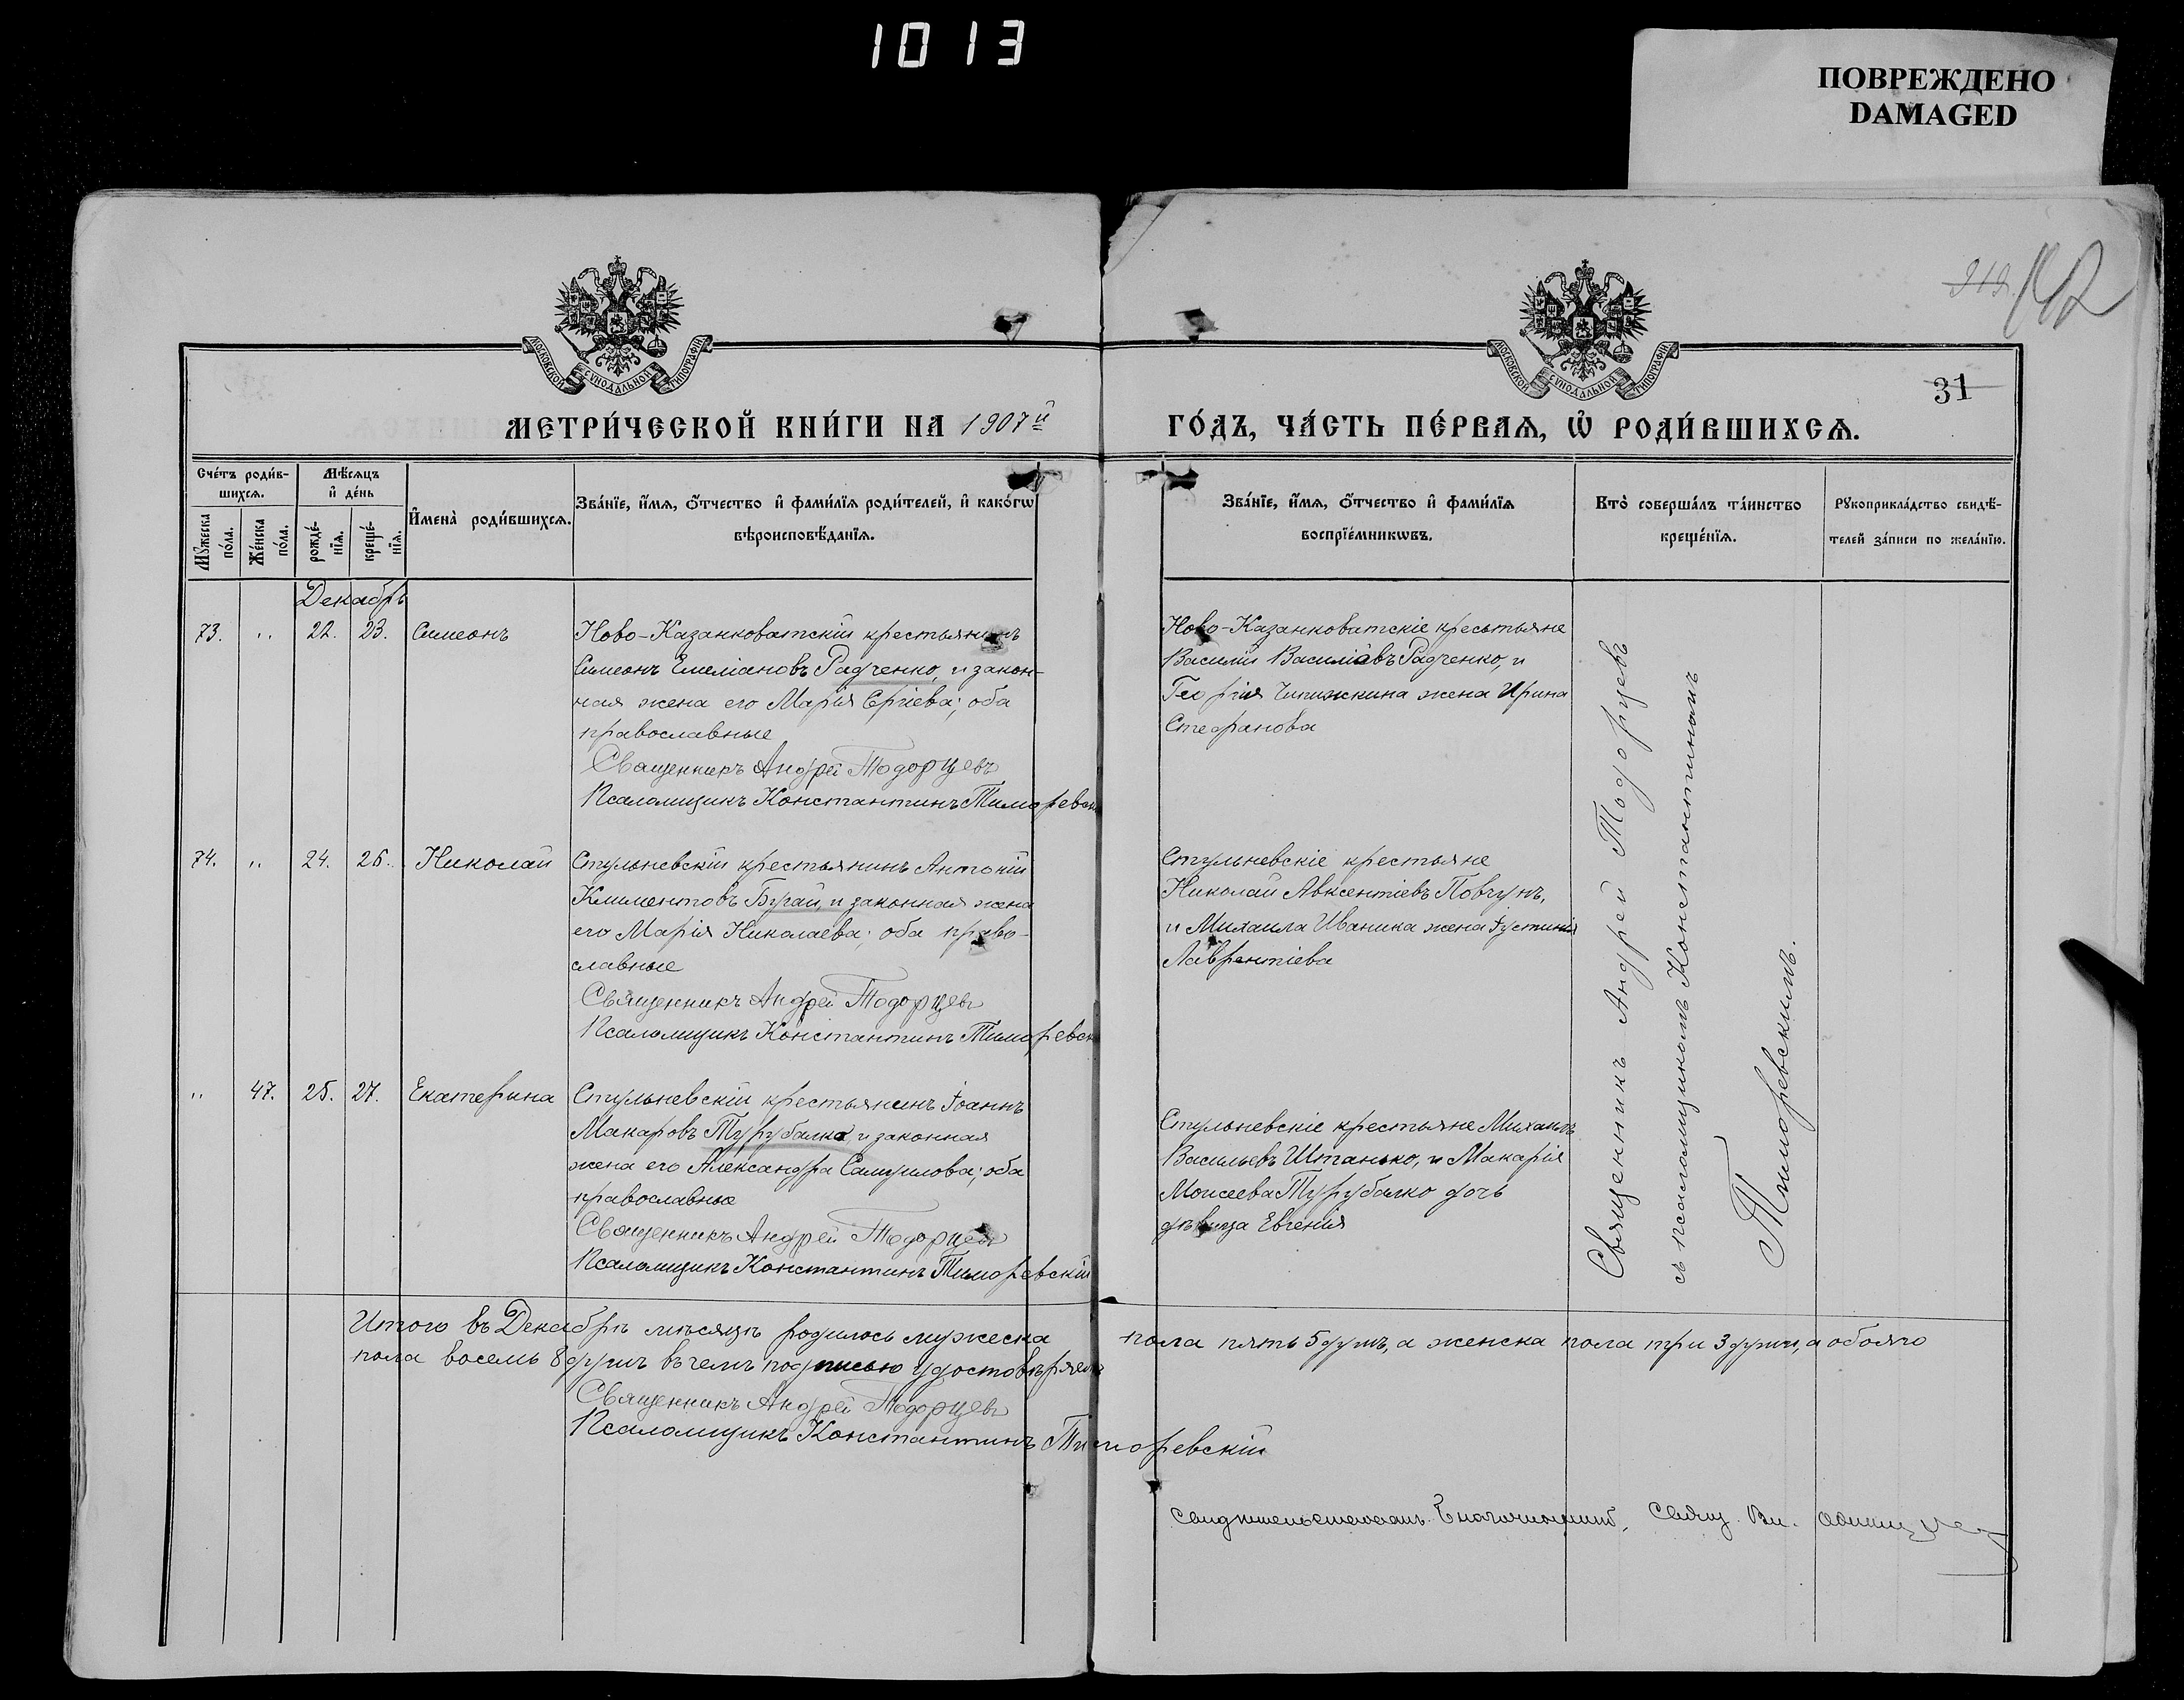 1013
ПОВРЕЖДЕНО
DAMAGED
319.
142
31
МОСКОВСКОЙ СУНОДАЛЬНОЙ ТИПОГРАФІИ
МОСКОВСКОЙ СУНОДАЛЬНОЙ ТИПОГРАФІИ
МЕТРИ́ЧЕСКОЙ КНИ́ГИ НА 1907й
ГО́ДЪ, ЧА́СТЬ ПЕ́РВАѦ, Ѡ҆ РОДИ́ВШИХСѦ.
Сче́тъ роди́в-
шихсѧ.
Мѣ́сѧцъ
и҆ де́нь
Мꙋ́жеска
по́ла.
Же́нска
по́ла.
рожде́-
нїѧ.
креще́-
нїѧ.
И҆мена̀ роди́вшихсѧ.
Зва́нїе, и҆́мѧ, ѻ҆́тчество и҆ фами́лїѧ роди́телей, и҆ како́гѡ
вѣроисповѣ́данїѧ.
Зва́нїе, и҆́мѧ, ѻ҆́тчество и҆ фами́лїѧ
воспрїе́мникѡвъ.
Кто̀ соверша́лъ та́инство
креще́нїѧ.
Рꙋкоприкла́дство свидѣ́-
телей за́писи по жела́нїю.
Декабрь
73. " 22. 23. Симеонъ
Ново-Казанковатскій крестьянинъ
Симеонъ Емеліановъ Радченко, и закон-
ная жена его Марія Ергіева; оба
православные
Священникъ Андрей Тодорцевъ
Псаломщикъ Константинъ Тиморевск
Ново-Казанковатскіе кресьтьяне
Василій Василіавъ Радченко, и
Георгія Чипижкина жена Ирина
Стефанова
74. " 24. 25. Николай
Стульневскій крестьянинъ Антоній
Климентовъ Бугай, и законная жена
его Марія Николаева; оба право-
славные
Священникъ Андрей Тодорцевъ
Псаломщикъ Константинъ Тиморевск
Стульневскіе крестьяне
Николай Авксентіевъ Повчунъ,
и Михаила Иванина жена Іустинія
Лаврентіева
" 47. 25. 27. Екатерина
Стульневскій крестьянинъ Іоаннъ
Макаровъ Турубалко, и законная
жена его Александра Самуилова; оба
православные
Священникъ Андрей Тодорцевъ
Псаломщикъ Константинъ Тиморевскій
Стульневскіе крестьяне Михаилъ
Васильевъ Штанько, и Макарія
Моисеева Турубалко дочь
дѣвица Евгенія
Священникъ Андрей Тодорцевъ
съ псаломщикомъ Константиномъ
Тиморевскимъ.
Итого въ Декабрѣ мѣсяцѣ родилось мужеска пола пять 5 душъ, а женска пола три 3 души, а обоего
пола восемь 8 душъ въ чемъ подписью удостовѣряемъ
Священникъ Андрей Тодорцевъ
Псаломщикъ Константинъ Тиморевскій
Свидѣтельствовалъ Благочинный, Свящ. Вл.